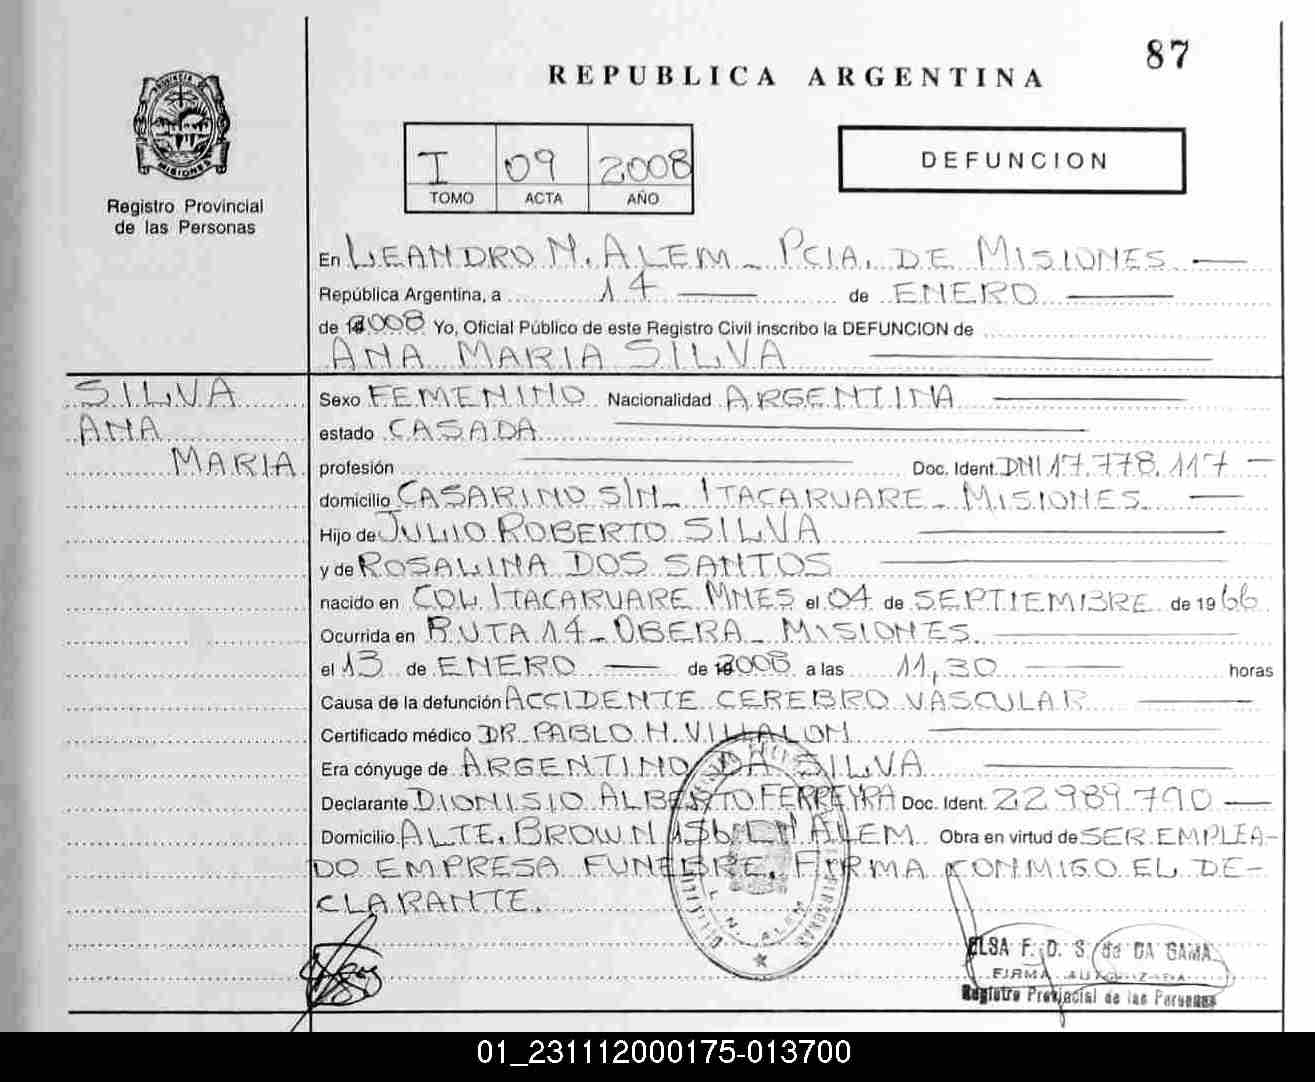 87
REPUBLICA ARGENTINA
PROVINCIA DE
MISIONES
Registro Provincial
de las Personas
I 09 2008
TOMO ACTA AÑO
DEFUNCION
En LEANDRO N. ALEM - PCIA. DE MISIONES
República Argentina, a 14 de ENERO
de 2008 Yo, Oficial Público de este Registro Civil inscribo la DEFUNCION de
ANA MARIA SILVA
SILVA
ANA
MARIA
Sexo FEMENINO Nacionalidad ARGENTINA
estado CASADA
profesión Doc. Ident. DNI 17.778.117
domicilio CASARINO S/N - ITACARUARE - MISIONES.
Hijo de JULIO ROBERTO SILVA
y de ROSALINA DOS SANTOS
nacido en COL. ITACARUARE MNES el 04 de SEPTIEMBRE de 1966
Ocurrida en RUTA 14 - OBERA - MISIONES
el 13 de ENERO de 2008 a las 11,30 horas
Causa de la defunción ACCIDENTE CEREBRO VASCULAR
Certificado médico DR. PABLO H. VILLALON
Era cónyuge de ARGENTINO DA SILVA
Declarante DIONISIO ALBERTO FERREYRA Doc. Ident. 22989.790
Domicilio ALTE. BROWN 156 LN ALEM Obra en virtud de SER EMPLEA-
DO EMPRESA FUNEBRE. FIRMA CONMIGO EL DE-
CLARANTE.
L. N. ALEM
ELSA F. D. S. de DA GAMA
FIRMA AUTORIZADA
Registro Provincial de las Personas
01_231112000175-013700